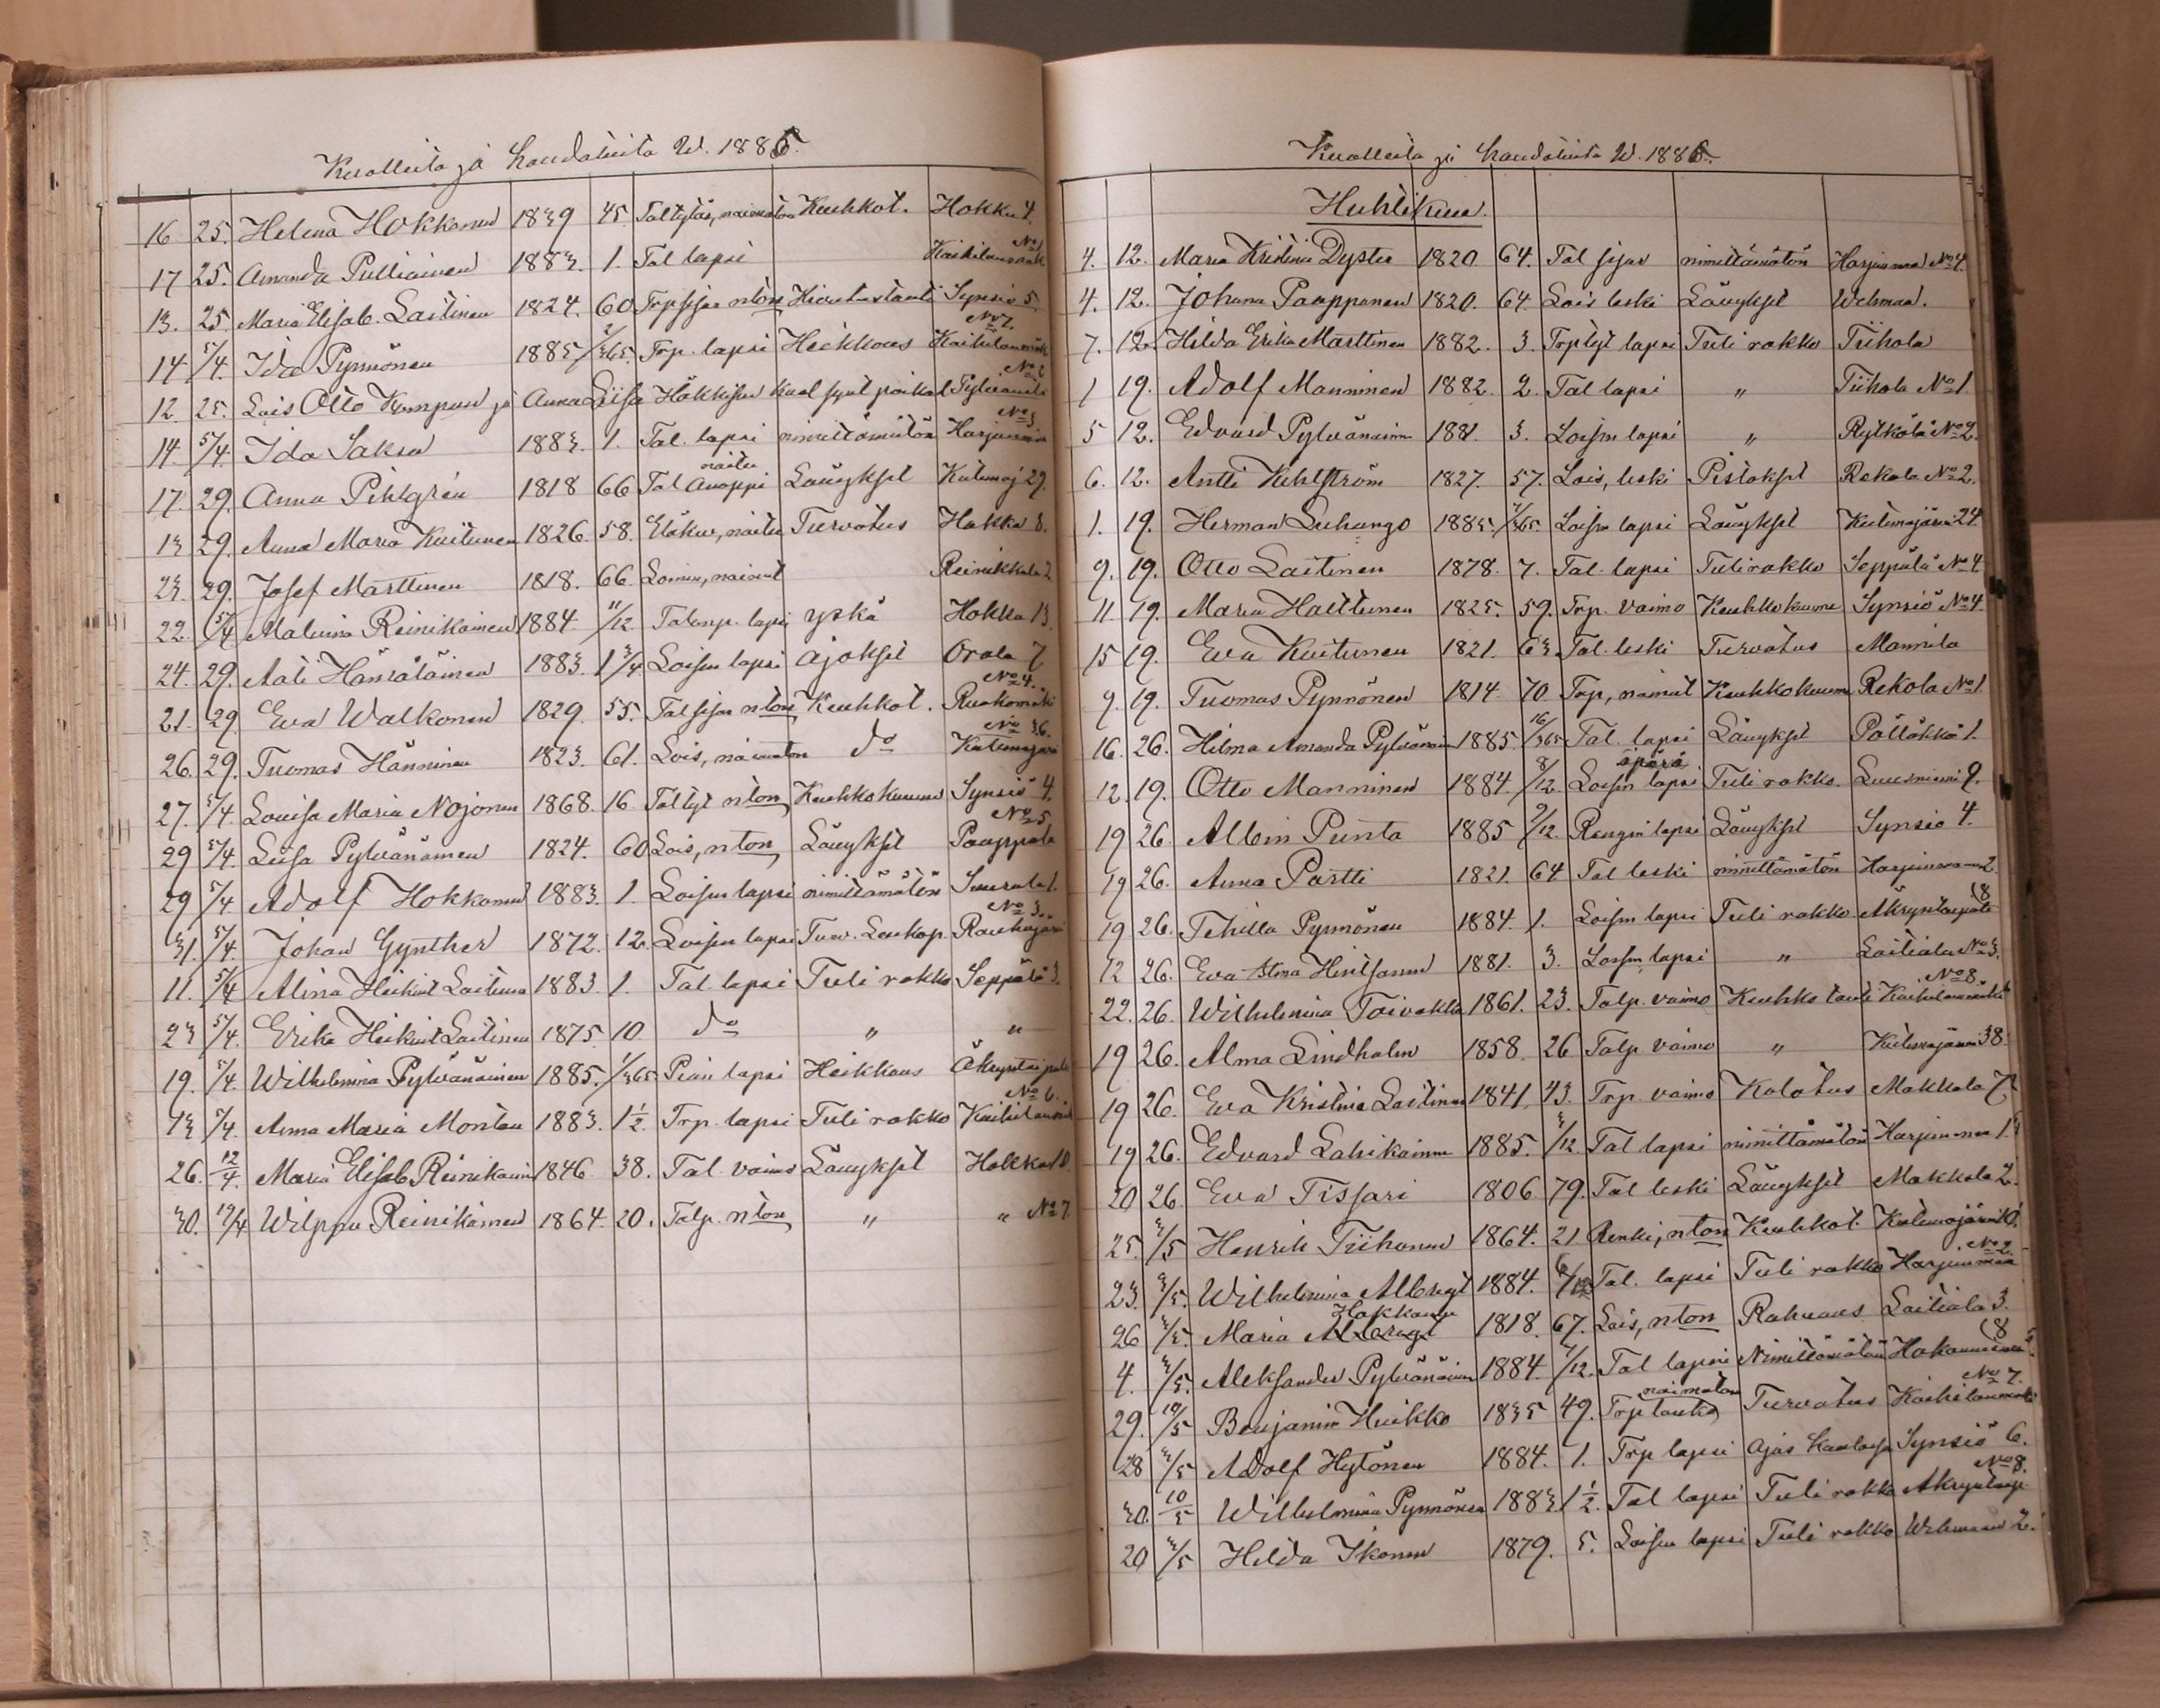 Kuolleita ja haudatuita W. 1885.
16 25. Helena Hokkanen 1839 45. Tal tytär, naimaton Keuhkot. Hokka 4.
17 25. Amanda Pulliainen 1883. 1. Tal lapsi No 1
13. 25 Maria Elisab. Laitinen 1824. 60 Trp sisar nton Synsiö 5.
14 5/4. Ida Pynnönen 1885 2/365. Trp. lapsi Heikkous No 7.
12. 25. Lois Otto Kumpun ja Anna Liisa Häkkisen kuol synt poikal No 2
14. 5/4. Ida Saksa 1883. 1. Tal. lapsi nimittämätön Harjunmaa No 3
17. 29. Anna Pihlgrén 1818 66 Tal Anoppi naitu Lävykset Kutemaj 29.
13 29. Anna Maria Kuitunen 1826. 58. Eläkev, naitu Turvotus Hokka 8.
23. 29. Josef Marttinen 1818. 66. Loinen, nainut Reinikkala 2
22. 5/4 Malviina Reinikainen 1884. 11/12 Talonp. lapsi yskä Hokka 13.
24. 29. Aati Hämäläinen 1883. 1 3/4 Loisen lapsi Ajokset Orala 7
21. 29 Eva Walkonen 1829. 55. Tal sisar nton Keuhkot. Ruokomäki No 4.
26. 29. Tuomas Hänninen 1823. 61. Lois, naimaton do Kutemajärvi No 36.
27. 5/4. Lovisa Maria Nojonen 1868. 16 Tal tyt nton Keuhkokuume Synsiö 4.
29 5/4. Liisa Pylvänäinen 1824. 60 Lois, nton Lävykset Paappala No 5
29 5/4. Adolf Hokkanen 1883. 1. Loisen lapsi nimittämätön 1.
31. 5/4. Johan Gynther 1872. 12. Loisen lapsi Tuw. Lankap. Rauhajärvi No 3.
11. 5/4 Alina Heikint Laitinen 1883. 1. Tal. lapsi Tuli rokko Seppälä 3.
23 5/4. Erika Heikint Laitinen 1875. 10 do " "
19. 5/4. Wilhelmina Pylvänäinen 1885. 1/365 Piian lapsi Heikkous
13 5/4. Anna Maria Montan 1883. 1 1/2. Trp. lapsi Tuli rokko Kaihilanmäki No 6.
26. 12/4. Maria Elisab Reinikainen 1846 38. Tal. vaimo Lävykset Hokka 8.
30. 19/4 Wilppu Reinikainen 1864. 20. Talp. nton " " No 7.
Kuolleita ja haudatuita W. 1885.
Huhtikuu.
4. 12. Maria Kristina Dyster 1820. 64. Tal sisar nimittämätön Harjunmaa No 4.
4. 12. Johana Paappanen 1820. 64. Lois leski Lävykset Wehmaa.
7. 12. Hilda Erika Marttinen 1882. 3. Trp tyt lapsi Tuli rokko Tiihola
1 19. Adolf Manninen 1882. 2. Tal lapsi " Tiihola No 1.
5 12. Edvard Pylvänäinen 1881. 3. Loisen lapsi " Rytkölä No 2.
6. 12. Antti Kihlström 1827. 57. Lois, leski Pistokset Rekola No 2.
1. 19. Herman Suhango 1885. /365. Loisen lapsi Lävykset Kutemajärvi 24.
9. 19. Otto Laitinen 1878. 7. Tal. lapsi Tulirokko Seppälä No 4
11. 19. Maria Halttunen 1825. 59. Trp. vaimo Keuhkokuume Synsiö No 4.
15 19. Eva Kuitunen 1821. 63 Tal. leski Turvotus Mannila
9. 19. Tuomas Pynnönen 1814. 70 Trp, nainut Keuhkokuume Rekola No 1.
16. 26. Hilma Amanda Pylvänäinen 1885 16/365 Tal. lapsi Lävykset Pöllökkö 1.
12. 19. Otto Manninen 1884. 8/12 Loisen lapsi äpärä Tuli rokko. Luusniemi 9.
19 26. Albin Punta 1885 2/12 Rengin lapsi Lävykset Synsiö 4.
19 26. Anna Partti 1821. 64 Tal leski nimittämätön Harjunmaa 2.
19 26. Tehilla Pynnönen 1884. 1. Loisen lapsi Tuli rokko 8
12 26. Eva Stina Hintsanen 1881. 3. Loisen lapsi " Laitiala No 3.
22. 26. Wilhelmina Toivakka 1861. 23. Talp. vaimo Keuhko tauti Kaihilanmäki No 8.
19 26. Alma Lindholm 1858. 26 Talp. vaimo " Kutemajärvi 38.
19 26. Eva Kristina Laitinen 1841. 43. Trp. vaimo Kolotus Makkola 7.
19 26. Edvard Lahikainen 1885. 3/12 Tal lapsi nimittämätön Harjunmaa 1.
20 26. Eva Tissari 1806 79. Tal leski Lävykset Makkola 2.
25. 3/5 Henrik Tiihonen 1864. 21 Renki, nton Keuhkot. Kutemajärvi 10.
23. 3/5. Wilhelmina Albregt 1884. 6/12 Tal. lapsi Tuli rokko Harjunmaa No 2.
26 3/5. Maria Albregt Hokkanen 1818. 67. Lois, nton Laitiala 3.
4. 3/5. Aleksander Pylvänäinen 1884. 7/12. Tal lapsi Nimittämätön 8
29. 10/5 Benjamin Huikko 1835 49. Trp naimaton Turvotus Kaihilanmäki No 7.
28 3/5 Adolf Hytönen 1884. 1. Trp lapsi Ajos kaulassa Synsiö 6.
30. 10/5 Wilhelmina Pynnönen 1883. 1 1/2. Tal lapsi Tuli rokko No 8.
20 3/5 Hilda Ikonen 1879. 5. Loisen lapsi Tuli rokko Wehmaa 2.